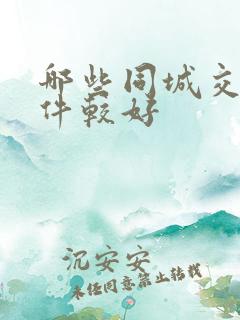 那些同城交
件较好
沉安安
未经同意禁止转载